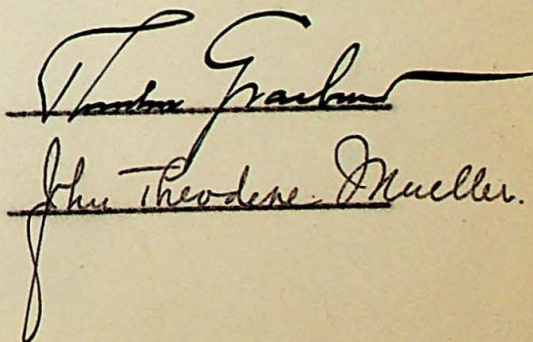 Theodore Graebner
John Theodore Mueller.